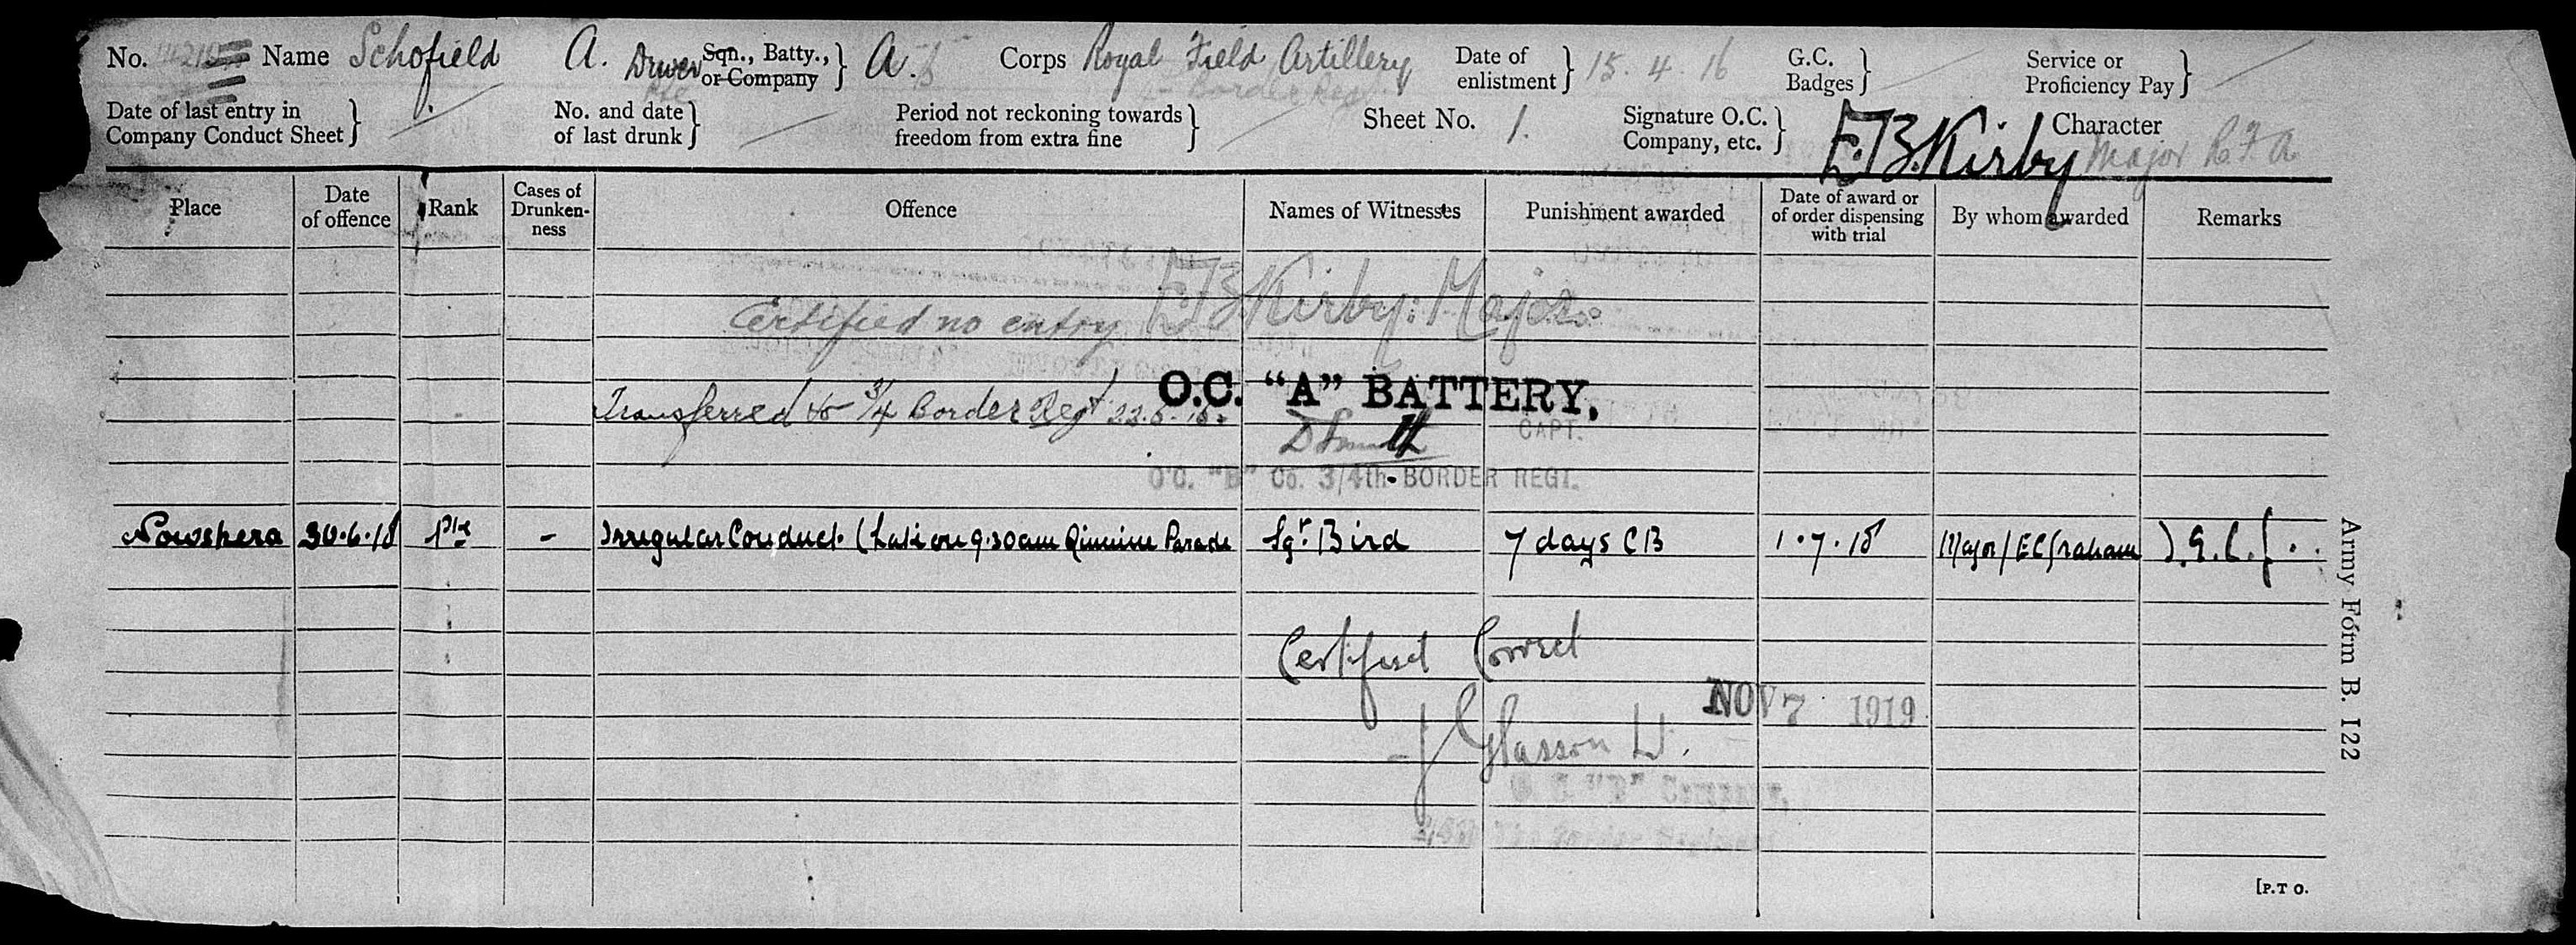 No. Name Schofield A. Driver Sqn., Batty., or Company } A. Corps Royal Field Artillery Date of enlistment } 15.4.16 G.C. Badges } Service or Proficiency Pay }
Pte Border Reg
Date of last entry in Company Conduct Sheet } No. and date of last drunk } Period not reckoning towards freedom from extra fine } Sheet No. 1. Signature O.C. Company, etc. } E.B. Kirby Major R.F.A. Character
Place Date of offence Rank Cases of Drunken-ness Offence Names of Witnesses Punishment awarded Date of award or of order dispensing with trial By whom awarded Remarks
Certified no entry E.B. Kirby. Major.
O.C. "A" BATTERY.
Transferred to 3/4 Border Regt
CAPT.
O.C. "B" Co. 3/4th. BORDER REGT.
Nowshera 30.6.18 Pte - Irregular Conduct. (Late on 9.30am Quinine Parade Sgt. Bird 7 days CB 1.7.18 Major E C Graham
Certified Correct
NOV 7 1919
J Glasson Lt.
Army Form B. 122
[P.T O.